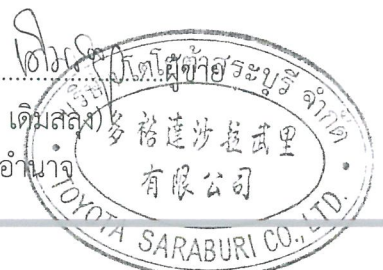 ผู้ขาย
เดิมสลุง)
อำนาจ
สระบุรี จำกัด
多裕達沙拉武里
有限公司
TOYOTA SARABURI CO., LTD.